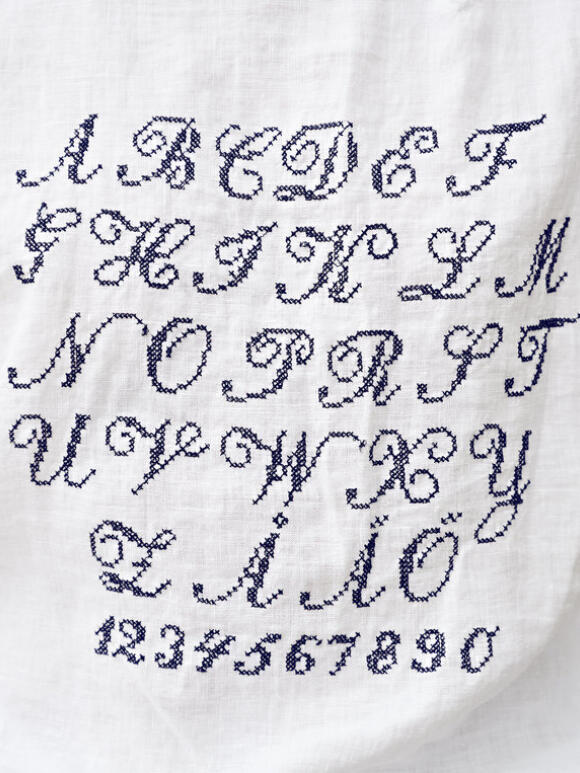 A B C D E F
G H I K L M
N O P R S T
U V W X Y
Z Å Ä Ö
1 2 3 4 5 6 7 8 9 0